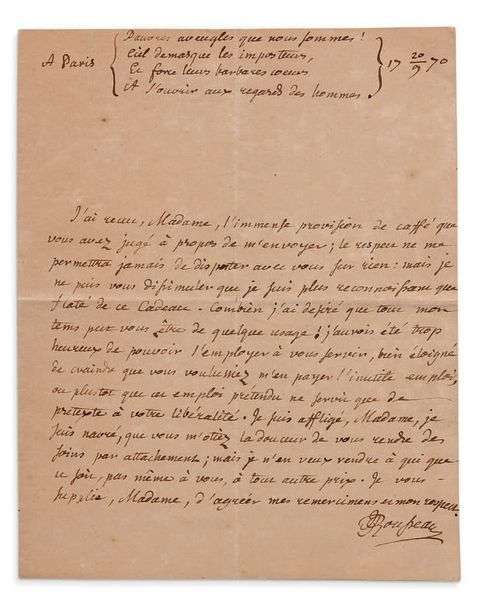 Pauvres aveugles que nous sommes!
Ciel demasque les imposteurs,
A Paris Et force leurs barbares cœurs 17 20/9 70
A s'ouvrir aux regards des hommes.
J'ai receu, Madame, l'immense provision de caffé que
vous avez jugé à propos de m'envoyer; le respect ne me
permettra jamais de disputer avec vous sur rien: mais je
ne puis vous dissimuler que je suis plus reconnoissant que
flaté de ce Cadeau. Combien j'ai desiré que tout mon
tems put vous être de quelque usage! j'aurois été trop
heureux de pouvoir l'employer à vous servir, bien éloigné
de craindre que vous voulussiez m'en payer l'inutile emploi,
ou plustot que cet emploi prétendu ne servit que de
prétexte à votre libéralité. Je suis affligé, Madame, je
suis navré, que vous m'otiez la douceur de vous rendre des
soins par attachement; mais je n'en veux rendre à qui que
ce soit, pas même à vous, à tout autre prix. Je vous
suplie, Madame, d'agréer mes remercimens et mon respect.
JJRousseau